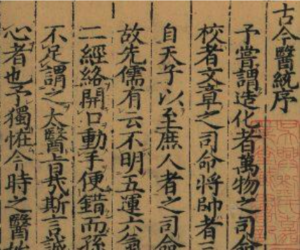 古今醫統序
予嘗謂造化者萬物之司命將帥者
校者文章之司命
自天子以至庶人者之司命
故先儒有云不明五運六氣
二經絡開口動手便錯而孫
不足謂之太醫旨哉斯言誠
心者也予獨怪今時之醫姓